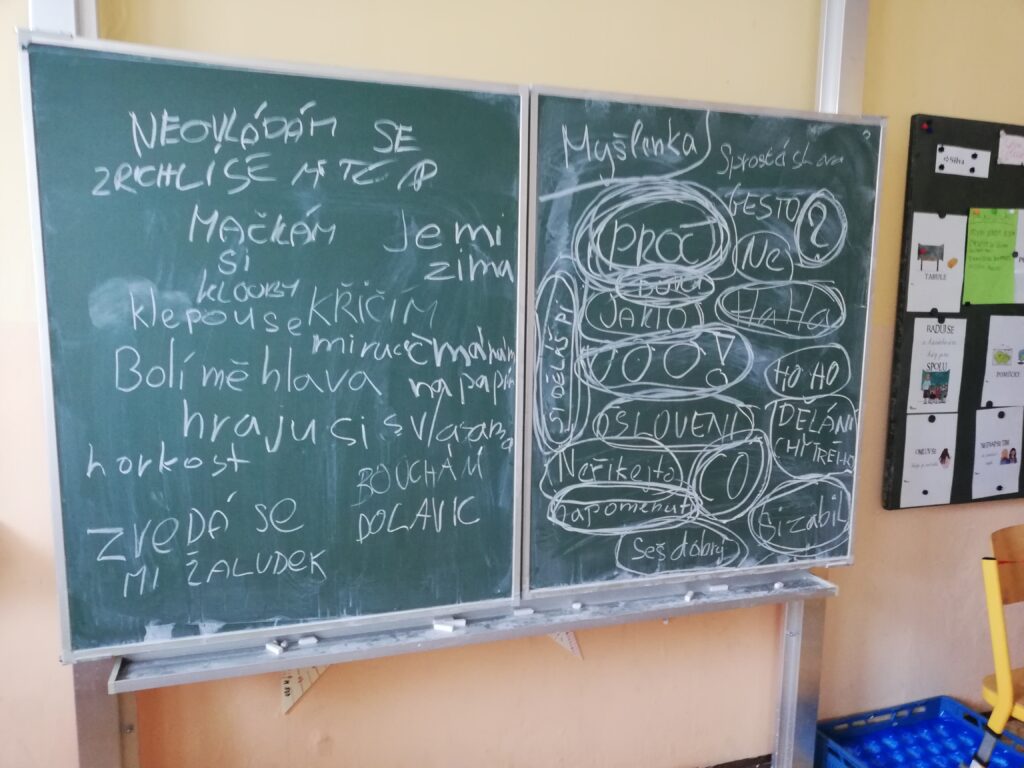 NEOVLÁDÁM SE
ZRCHLÍ SE MI TEP
MAČKÁM
SI
KLOUBY
Je mi
zima
klepou se
KŘIČÍM
mi ruce
Bolí mě hlava
čmárám
na papír
hraju si s vlasama
horkost
BOUCHÁM
DO LAVIC
ZVEDÁ SE
MI ŽALUDEK
Myšlenka
Sprostá slova
GESTO
?
PROČ
Ne
JAKTO
HaHa
JOOO!
HO HO
SI DĚLÁŠ
OSLOVENÍ
DĚLÁNÍ
CHYTRÉHO
Neříkejto
CO
napomenutí
si zabil
Seš dobrý
Silva
TABULE
RADUJ SE
SPOLU
POMŮCKY
OMLUV SE